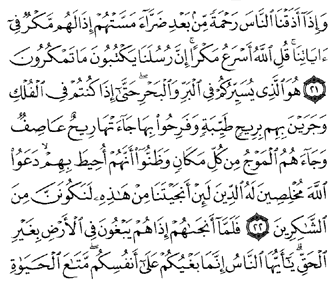 وَإِذَا أَذَقْنَا النَّاسَ رَحْمَةً مِّنْ بَعْدِ ضَرَّاءَ مَسَّتْهُمْ إِذَا لَهُم مَّكْرٌ فِي
ءَايَاتِنَا قُلِ اللَّهُ أَسْرَعُ مَكْرًا إِنَّ رُسُلَنَا يَكْتُبُونَ مَا تَمْكُرُونَ
٢١ هُوَ الَّذِي يُسَيِّرُكُمْ فِي الْبَرِّ وَالْبَحْرِ حَتَّى إِذَا كُنتُمْ فِي الْفُلْكِ
وَجَرَيْنَ بِهِم بِرِيحٍ طَيِّبَةٍ وَفَرِحُوا بِهَا جَاءَتْهَا رِيحٌ عَاصِفٌ
وَجَاءَهُمُ الْمَوْجُ مِن كُلِّ مَكَانٍ وَظَنُّوا أَنَّهُمْ أُحِيطَ بِهِمْ دَعَوُا
اللَّهَ مُخْلِصِينَ لَهُ الدِّينَ لَئِنْ أَنجَيْتَنَا مِنْ هَذِهِ لَنَكُونَنَّ مِنَ
الشَّاكِرِينَ ٢٢ فَلَمَّا أَنجَاهُمْ إِذَا هُمْ يَبْغُونَ فِي الْأَرْضِ بِغَيْرِ
الْحَقِّ يَا أَيُّهَا النَّاسُ إِنَّمَا بَغْيُكُمْ عَلَى أَنفُسِكُم مَّتَاعَ الْحَيَوةِ